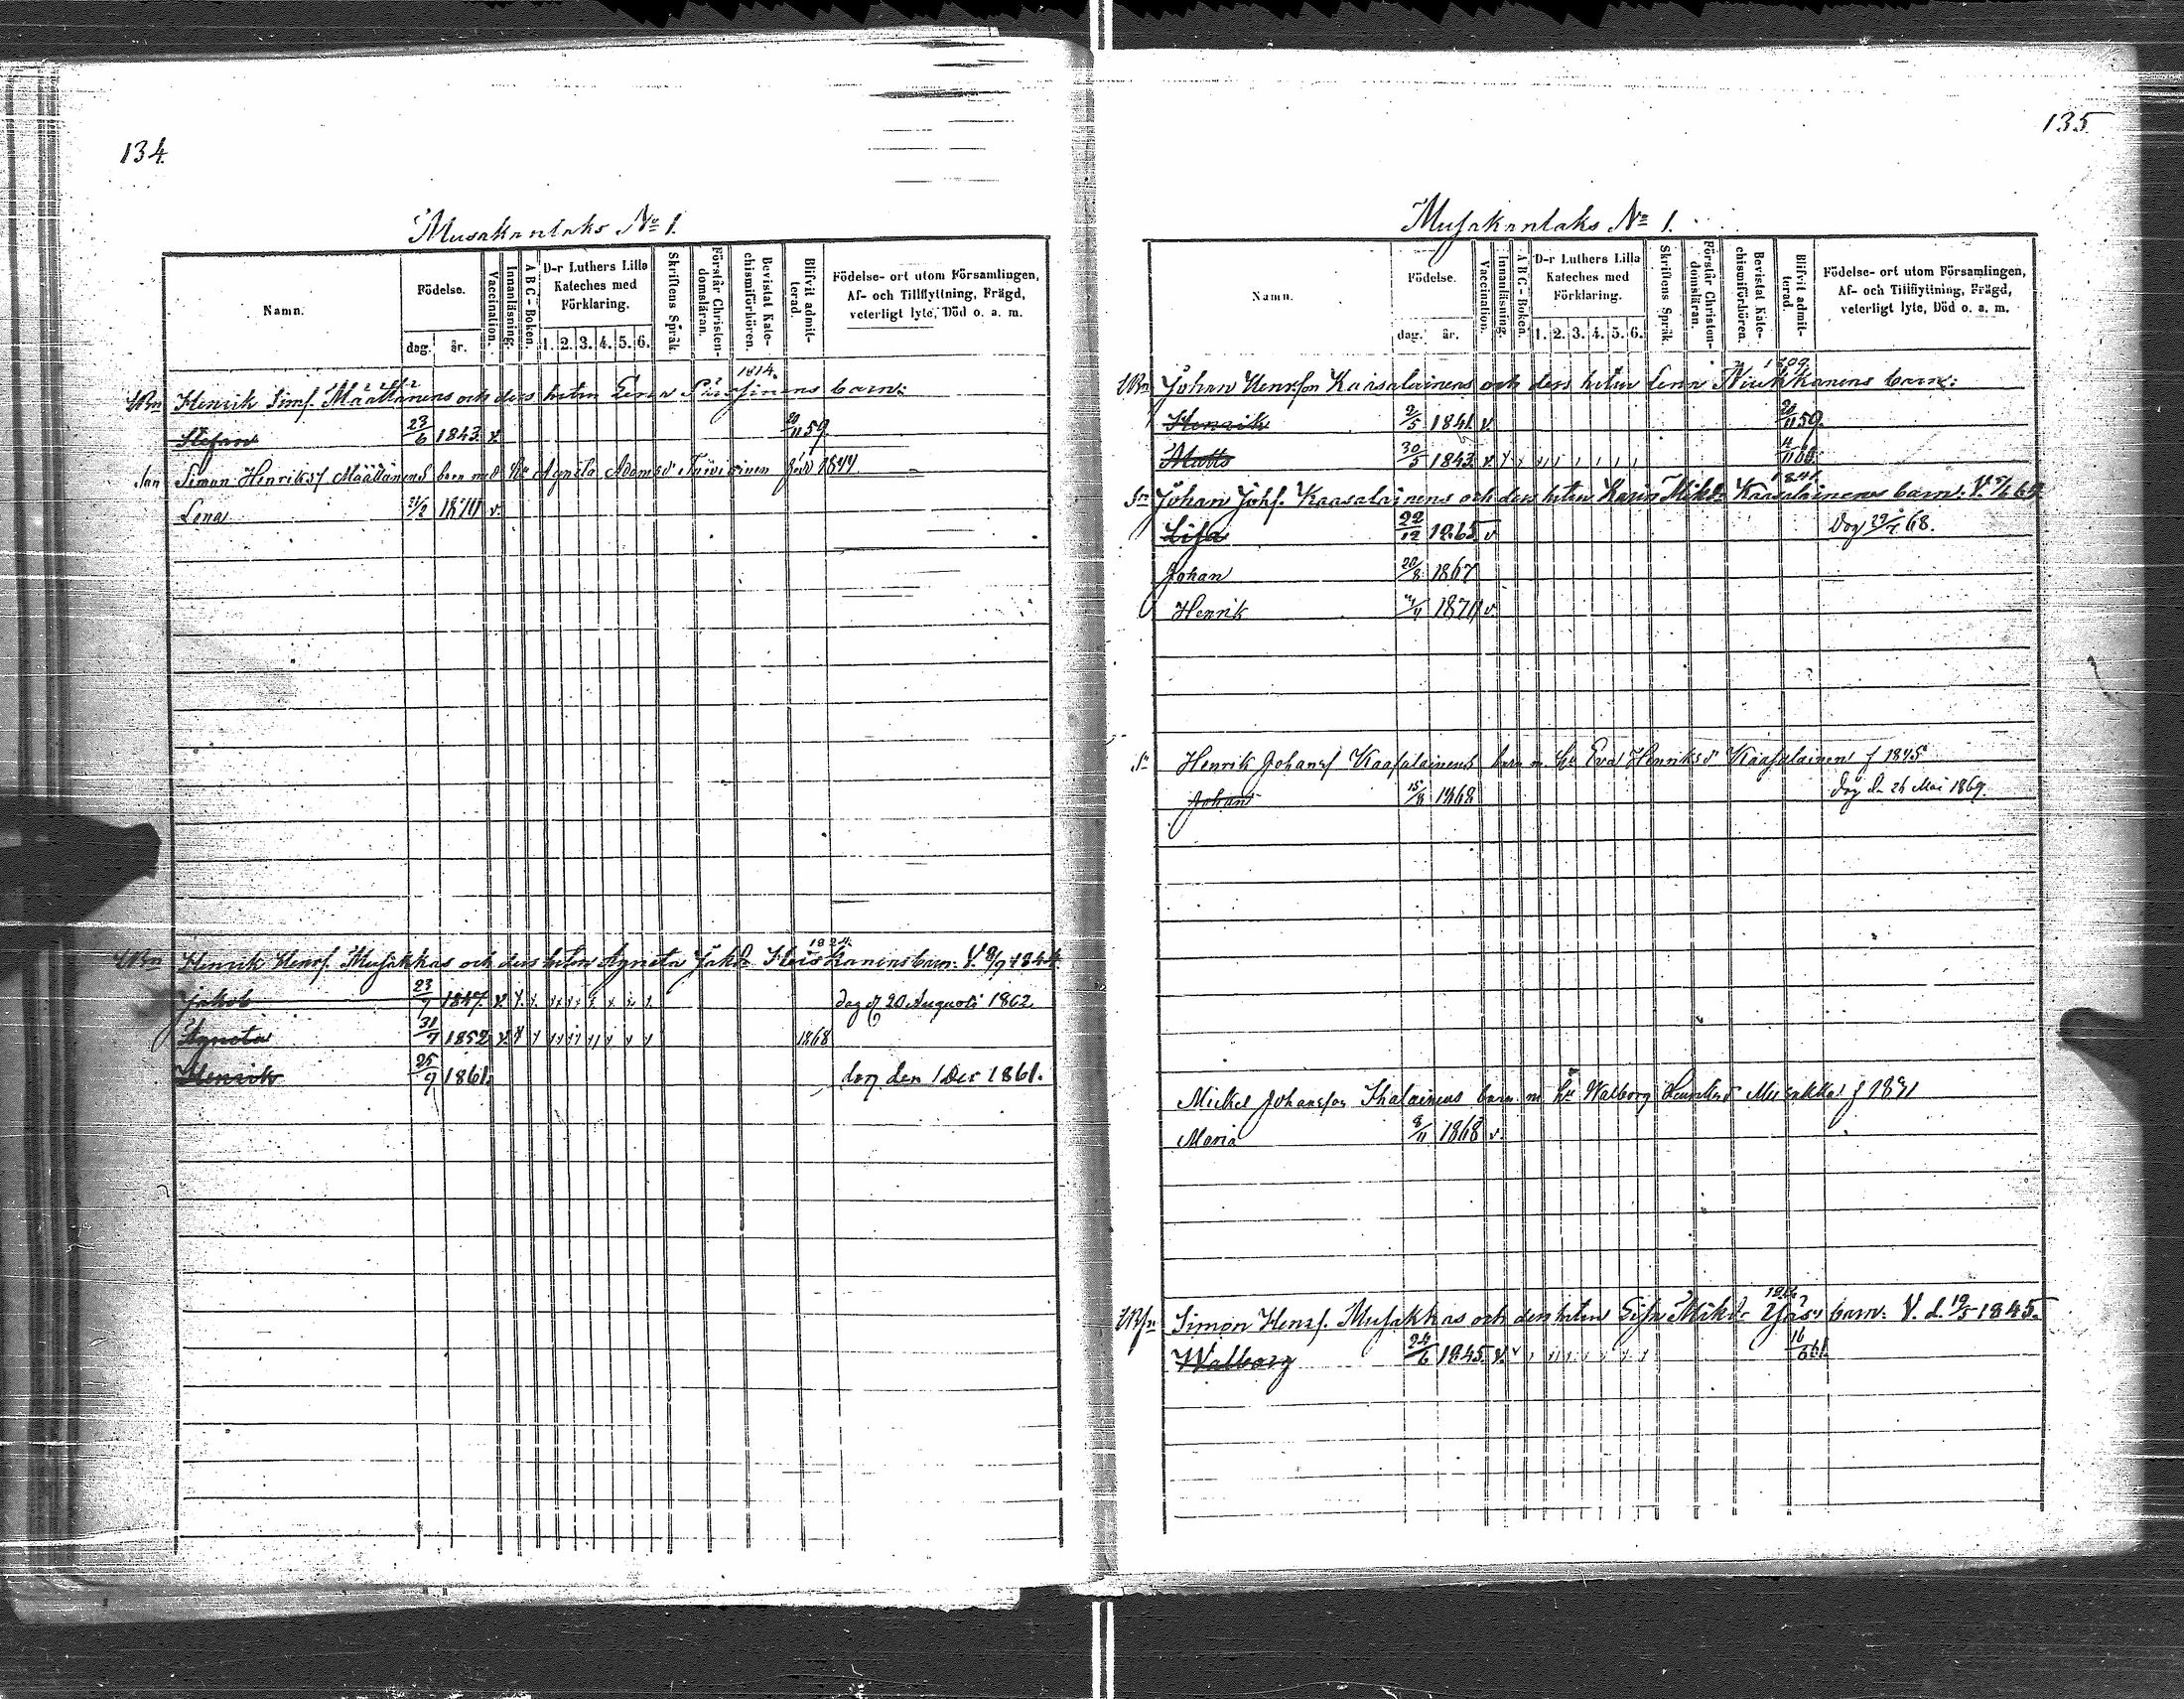 134.
Musakanlaks No 1.
Namn.
Födelse.
dag. år.
Vaccination.
Innanläsning.
A B C - Boken.
D-r Luthers Lilla Kateches med Förklaring.
1. 2. 3. 4. 5. 6.
Skriftens Språk.
Förstår Christendomsläran.
Bevistat Katechismiförhören.
Blifvit admitterad.
Födelse- ort utom Församlingen,
Af- och Tillflyttning, Frägd,
veterligt lyte, Död o. a. m.
1814.
Henrik Simf. Määttänens och dess hustru Lena barn:
Stefan 23/6 1843. v. 20/11 59.
Simon Henriksf Määttänens barn med hu Agneta Adamsd född 1844
Lena 1870 v.
1824.
Henrik Henrf. Musakkas och dess hustru Agneta Jakdr Heiskanens barn. V. 8/9 1844.
Jakob 23/7 1847. v. dog d 20 Augusti 1862
Agneta 31/7 1852 v. 1868
Henrik 25/9 1861. dog den 1 Dec 1861.
135.
Musakanlaks No 1.
Namn.
Födelse.
dag. år.
Vaccination.
Innanläsning.
A B C - Boken.
D-r Luthers Lilla Kateches med Förklaring.
1. 2. 3. 4. 5. 6.
Skriftens Språk.
Förstår Christendomsläran.
Bevistat Katechismiförhören.
Blifvit admitterad.
Födelse- ort utom Församlingen,
Af- och Tillflyttning, Frägd,
veterligt lyte, Död o. a. m.
1809
Johan Henrson Kaasalainens och dess hustru Lena Niukkanens barn:
Henrik 2/5 1841. v. 59.
Matts 30/5 1843. v. 60.
1841.
Sn Johan Johf. Kaasalainens och dess hustru Karin Mikdr Kaasalainens barn. V.
Lisa 22/12 1865 v Dog 68.
Johan 20/8 1867
Henrik 1870 v.
Sn Henrik Johansf Kaasalainens barn m hu Eva Henriksd Kaasalainen f 1845
Johan 15/8 1868 dog d 26 Mai 1869.
Mickel Johansson Ihalainens barn m hu Walborg Henriksd Musakka f
Maria 8/11 1868 v.
Simon Henrf. Musakkas och dess hustru Lisa Mikdr barn. V. d. 19/5 1845.
Walborg 24/6 1845. v. 16/6 61.